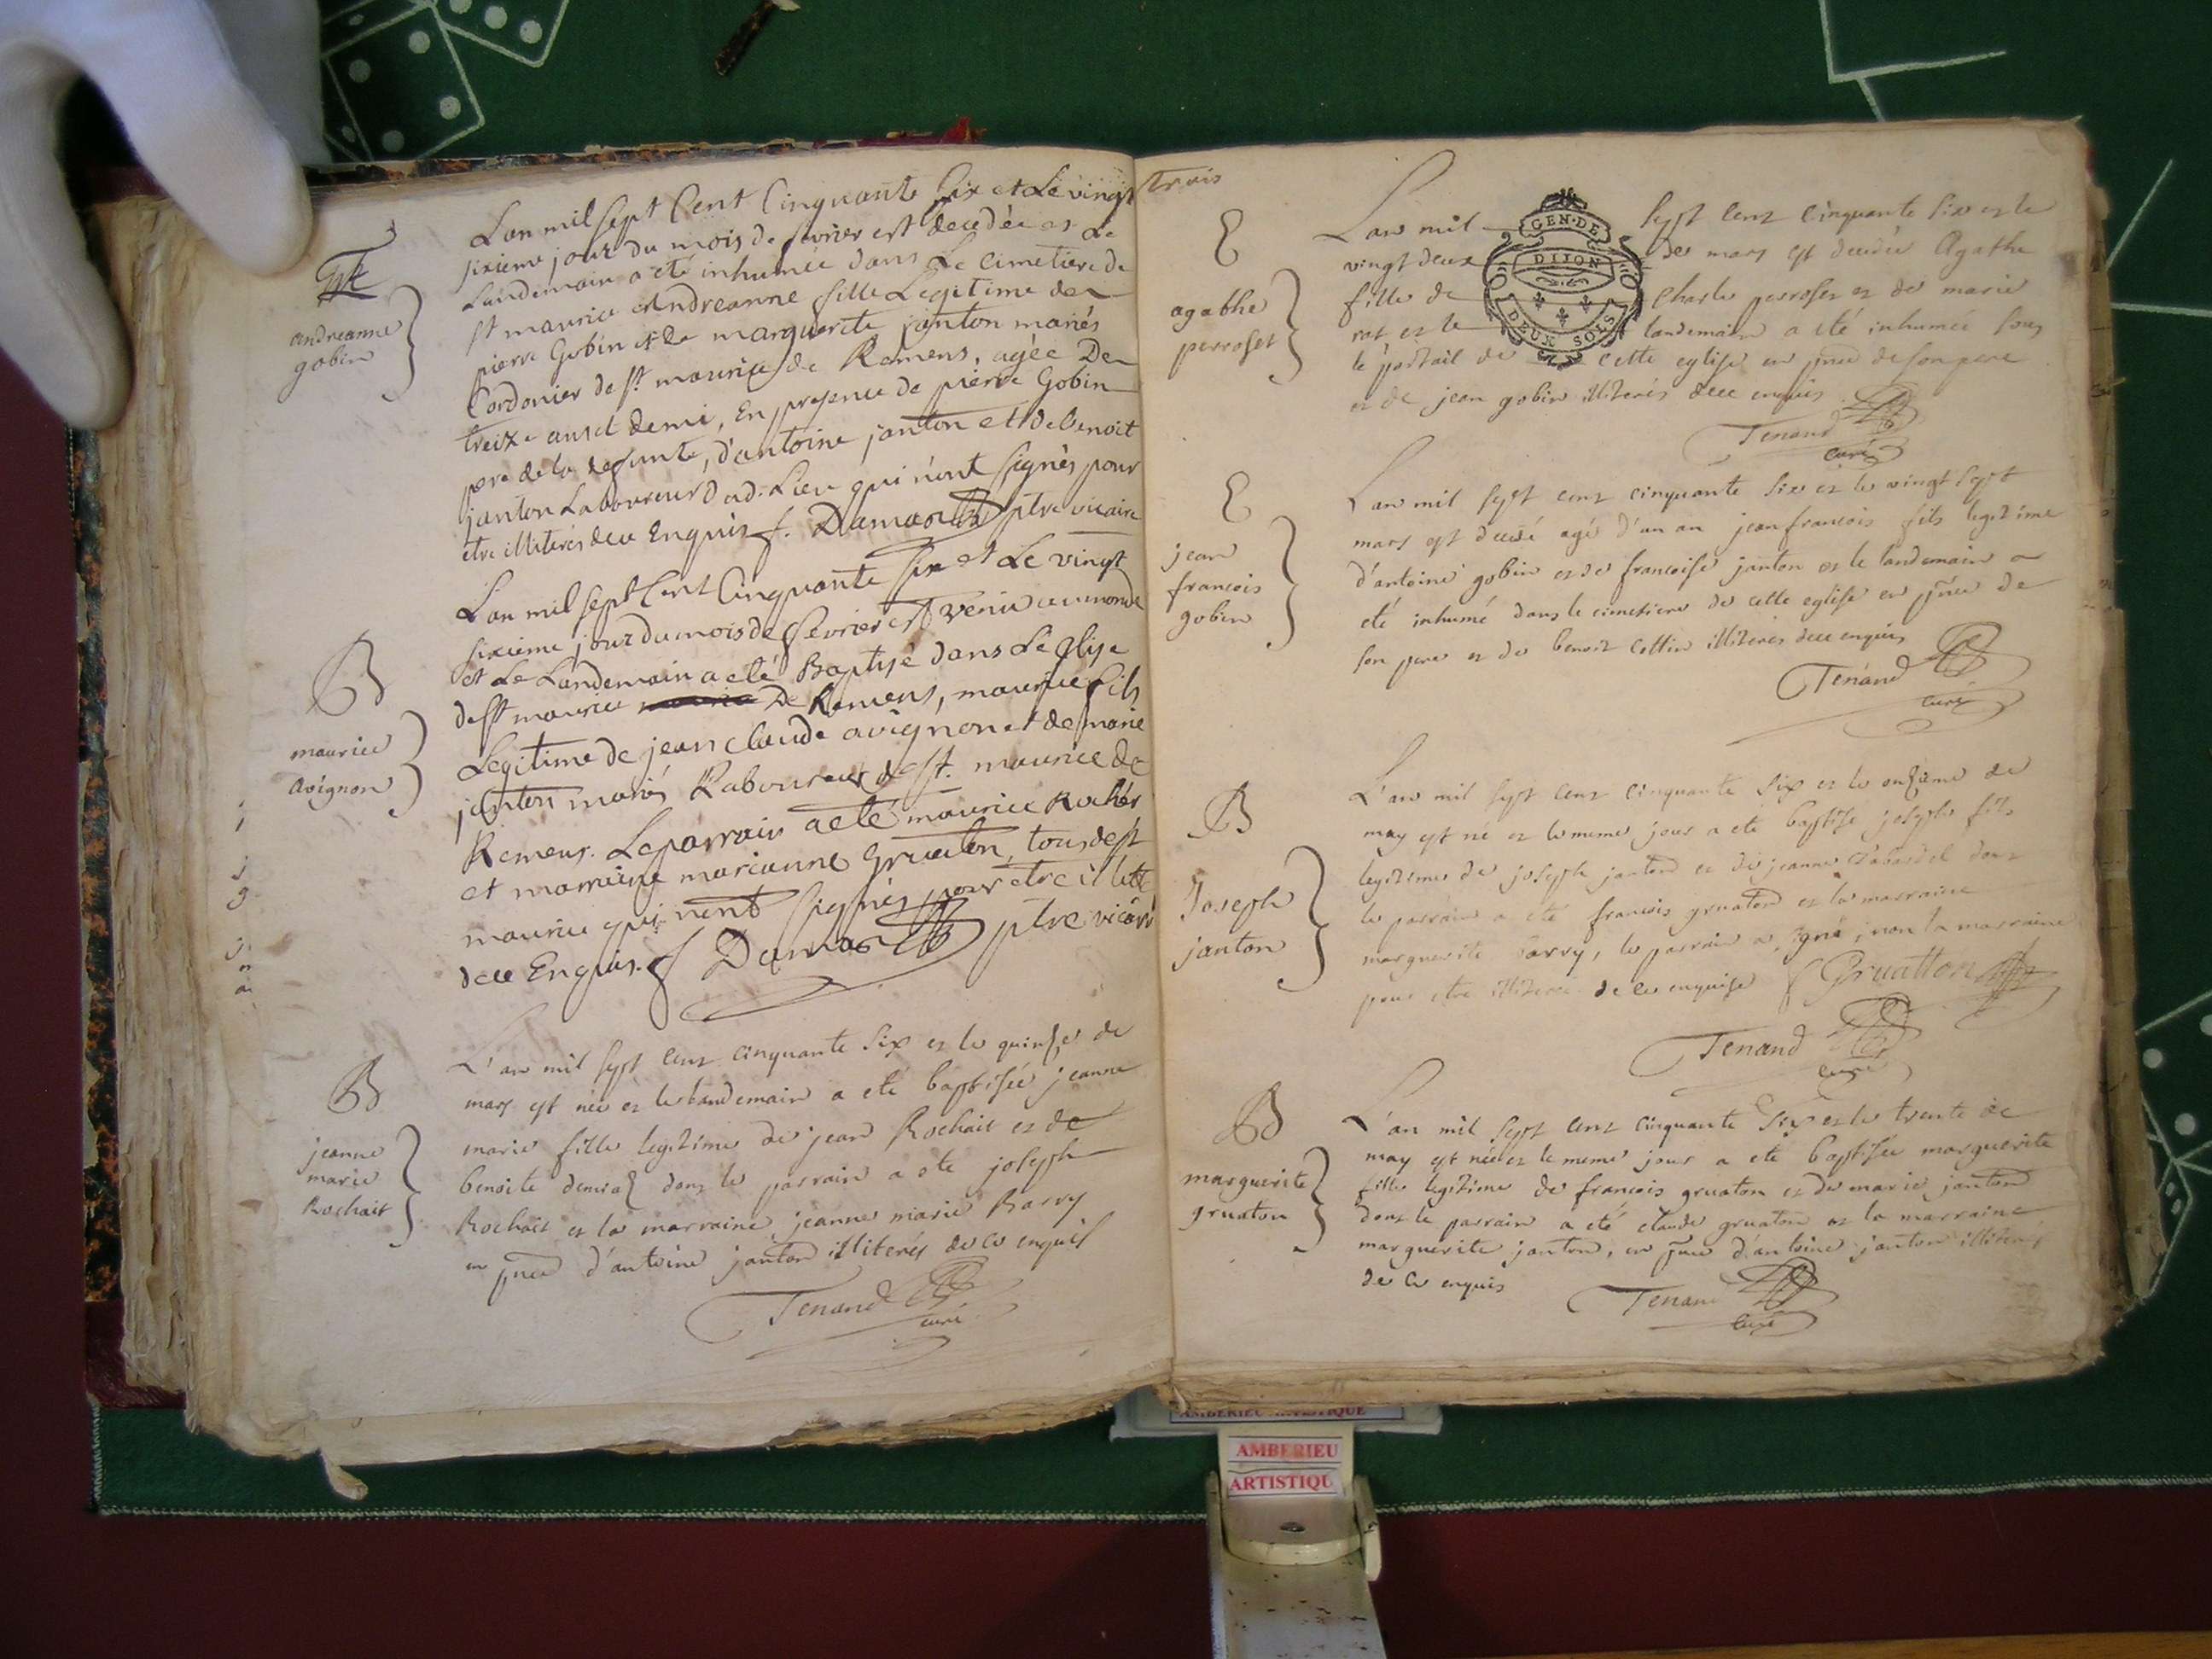 L'an mil sept Cent Cinquante Six et Le vingt
sixieme jour du mois de fevrier est decedée et Le
Landemain a eté inhumée dans Le cimetiere de
st maurice Andreanne fille Legitime de
pierre Gobin et de marguerite janton mariés
Cordonier de st maurice de Remens, agée De
treize ans et demi, En presence de pierre Gobin
pere de la defunte, d'antoine janton et de benoit
janton Laboureur dud. Lieu qui n'ont signés pour
etre illiterés de ce Enquis f. Damas ptre vicaire
andreanne
gobin
B
maurice
avignon
L'an mil sept Cent Cinquante six et Le vingt
sixieme jour du mois de fevrier est venu au monde
et Le Landemain a eté Baptisé dans Leglise
de st maurice De Remens, maurice fils
Legitime de jean claude avignon et de marie
janton mariés Laboureur de st. maurice de
Remens. Le parrain a eté maurice Rochér
et marraine marianne Gruaton, tous de st
maurice qui n'ont signés pour etre illité
de ce Enquis. f Damas ptre vicaire
B
jeanne
marie
Rochait
L'an mil sept cent cinquante six et le quinze de
mars est née et le landemain a eté baptisée jeanne
marie fille legitime de jean Rochait et de
benoite dont le parrain a eté joseph
Rochait et la marraine jeanne marie Barry
en pnce d'antoine janton illiterés de ce enquis
Tenand
curé
trois
E
agathe
perroset
L'an mil sept cent cinquante six et le
vingt deux de mars est decedée Agathe
fille de Charle perroset et de marie
rat et le landemain a eté inhumée sous
le portail de cette eglise en pnce de son pere
et de jean gobin illiterés de ce enquis
Tenand
curé
GEN·DE
DIJON
DEUX SOLS
E
jean
francois
gobin
L'an mil sept cent cinquante six et le vingt sept
mars est decedé agé d'un an jean francois fils legitime
d'antoine gobin et de francoise janton et le landemain a
eté inhumé dans le cimetiere de cette eglise en pnce de
son pere et de benoit cottin illiterés de ce enquis
Tenand
curé
B
Joseph
janton
L'an mil sept cent cinquante six et le onzieme de
may est né et le meme jour a eté baptisé joseph fils
legitime de joseph janton et de jeanne dont
le parrain a eté francois gruaton et la marraine
marguerite Barry, le parrain a signé, non la marraine
pour etre illiterée de ce enquise Gruatton
Tenand
curé
B
marguerite
gruaton
L'an mil sept cent cinquante six et le trente de
may est née et le meme jour a eté baptisée marguerite
fille legitime de francois gruaton et de marie janton
dont le parrain a eté claude gruaton et la marraine
marguerite janton, en pnce d'antoine janton illiterés
de ce enquis
Tenand
curé
AMBERIEU ARTISTIQUE
AMBERIEU
ARTISTIQU